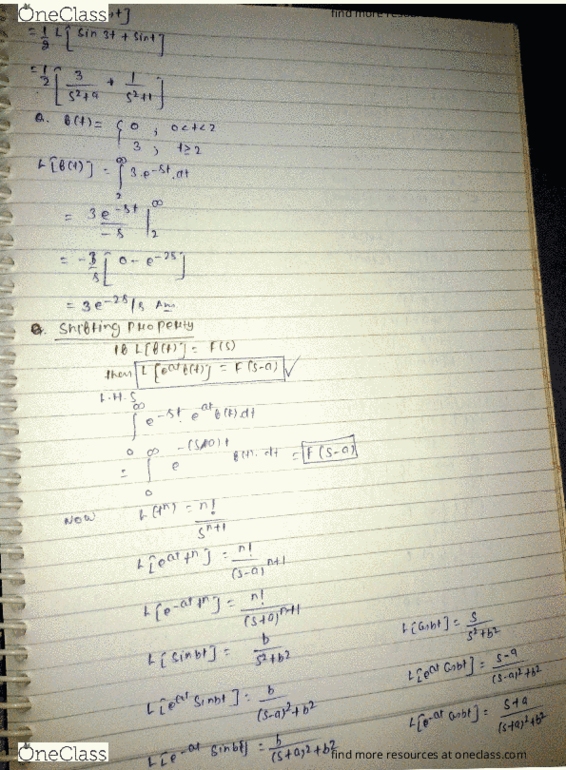 OneClass
find more resources
= 1/2 L[sin 3t + sin t]
= 1/2 [3/(s²+9) + 1/(s²+1)]
Q. f(t) = { 0 , 0<t<2
3 , t≥2
L[f(t)] = ∫₂^∞ 3.e^-st.dt
= 3e^-st/-s |₂^∞
= -3/s [0 - e^-2s]
= 3e^-2s/s Ans
Q. Shifting Property
If L[f(t)] = F(s)
then L[e^at f(t)] = F(s-a) ✓
L.H.S
∫₀^∞ e^-st. e^at f(t) dt
= ∫₀^∞ e^-(s-a)t f(t). dt = F(s-a)
Now L(tⁿ) = n!/s^n+1
L[e^at tⁿ] = n!/(s-a)^n+1
L[e^-at tⁿ] = n!/(s+a)^n+1
L[sinbt] = b/(s²+b²)
L[e^at sinbt] = b/((s-a)²+b²)
L[e^-at sinbt] = b/((s+a)²+b²)
L[cosbt] = s/(s²+b²)
L[e^at cosbt] = s-a/((s-a)²+b²)
L[e^-at cosbt] = s+a/((s+a)²+b²)
OneClass
find more resources at oneclass.com